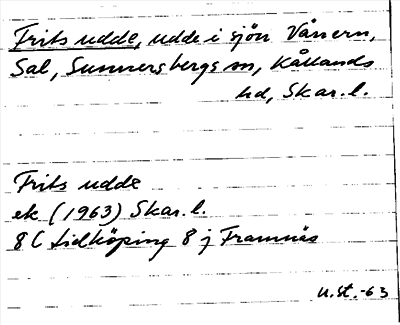 Frits udde, udde i sjön Vänern,
Sal, Sunnersbergs sn, Kållands
hd, Skar. l.
Frits udde
ek (1963) Skar. l.
8 C Lidköping 8 j Framnäs
u.st. -63